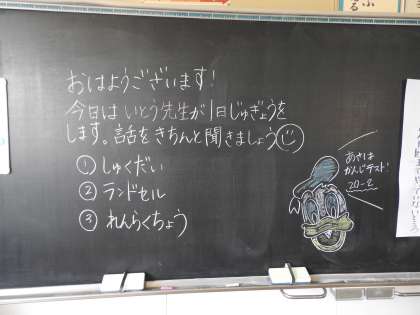 おはようございます!
今日はいとう先生が1日じゅぎょうを
します。話をきちんと聞きましょう
① しゅくだい
② ランドセル
③ れんらくちょう
あさは
かんじテスト!
20-2